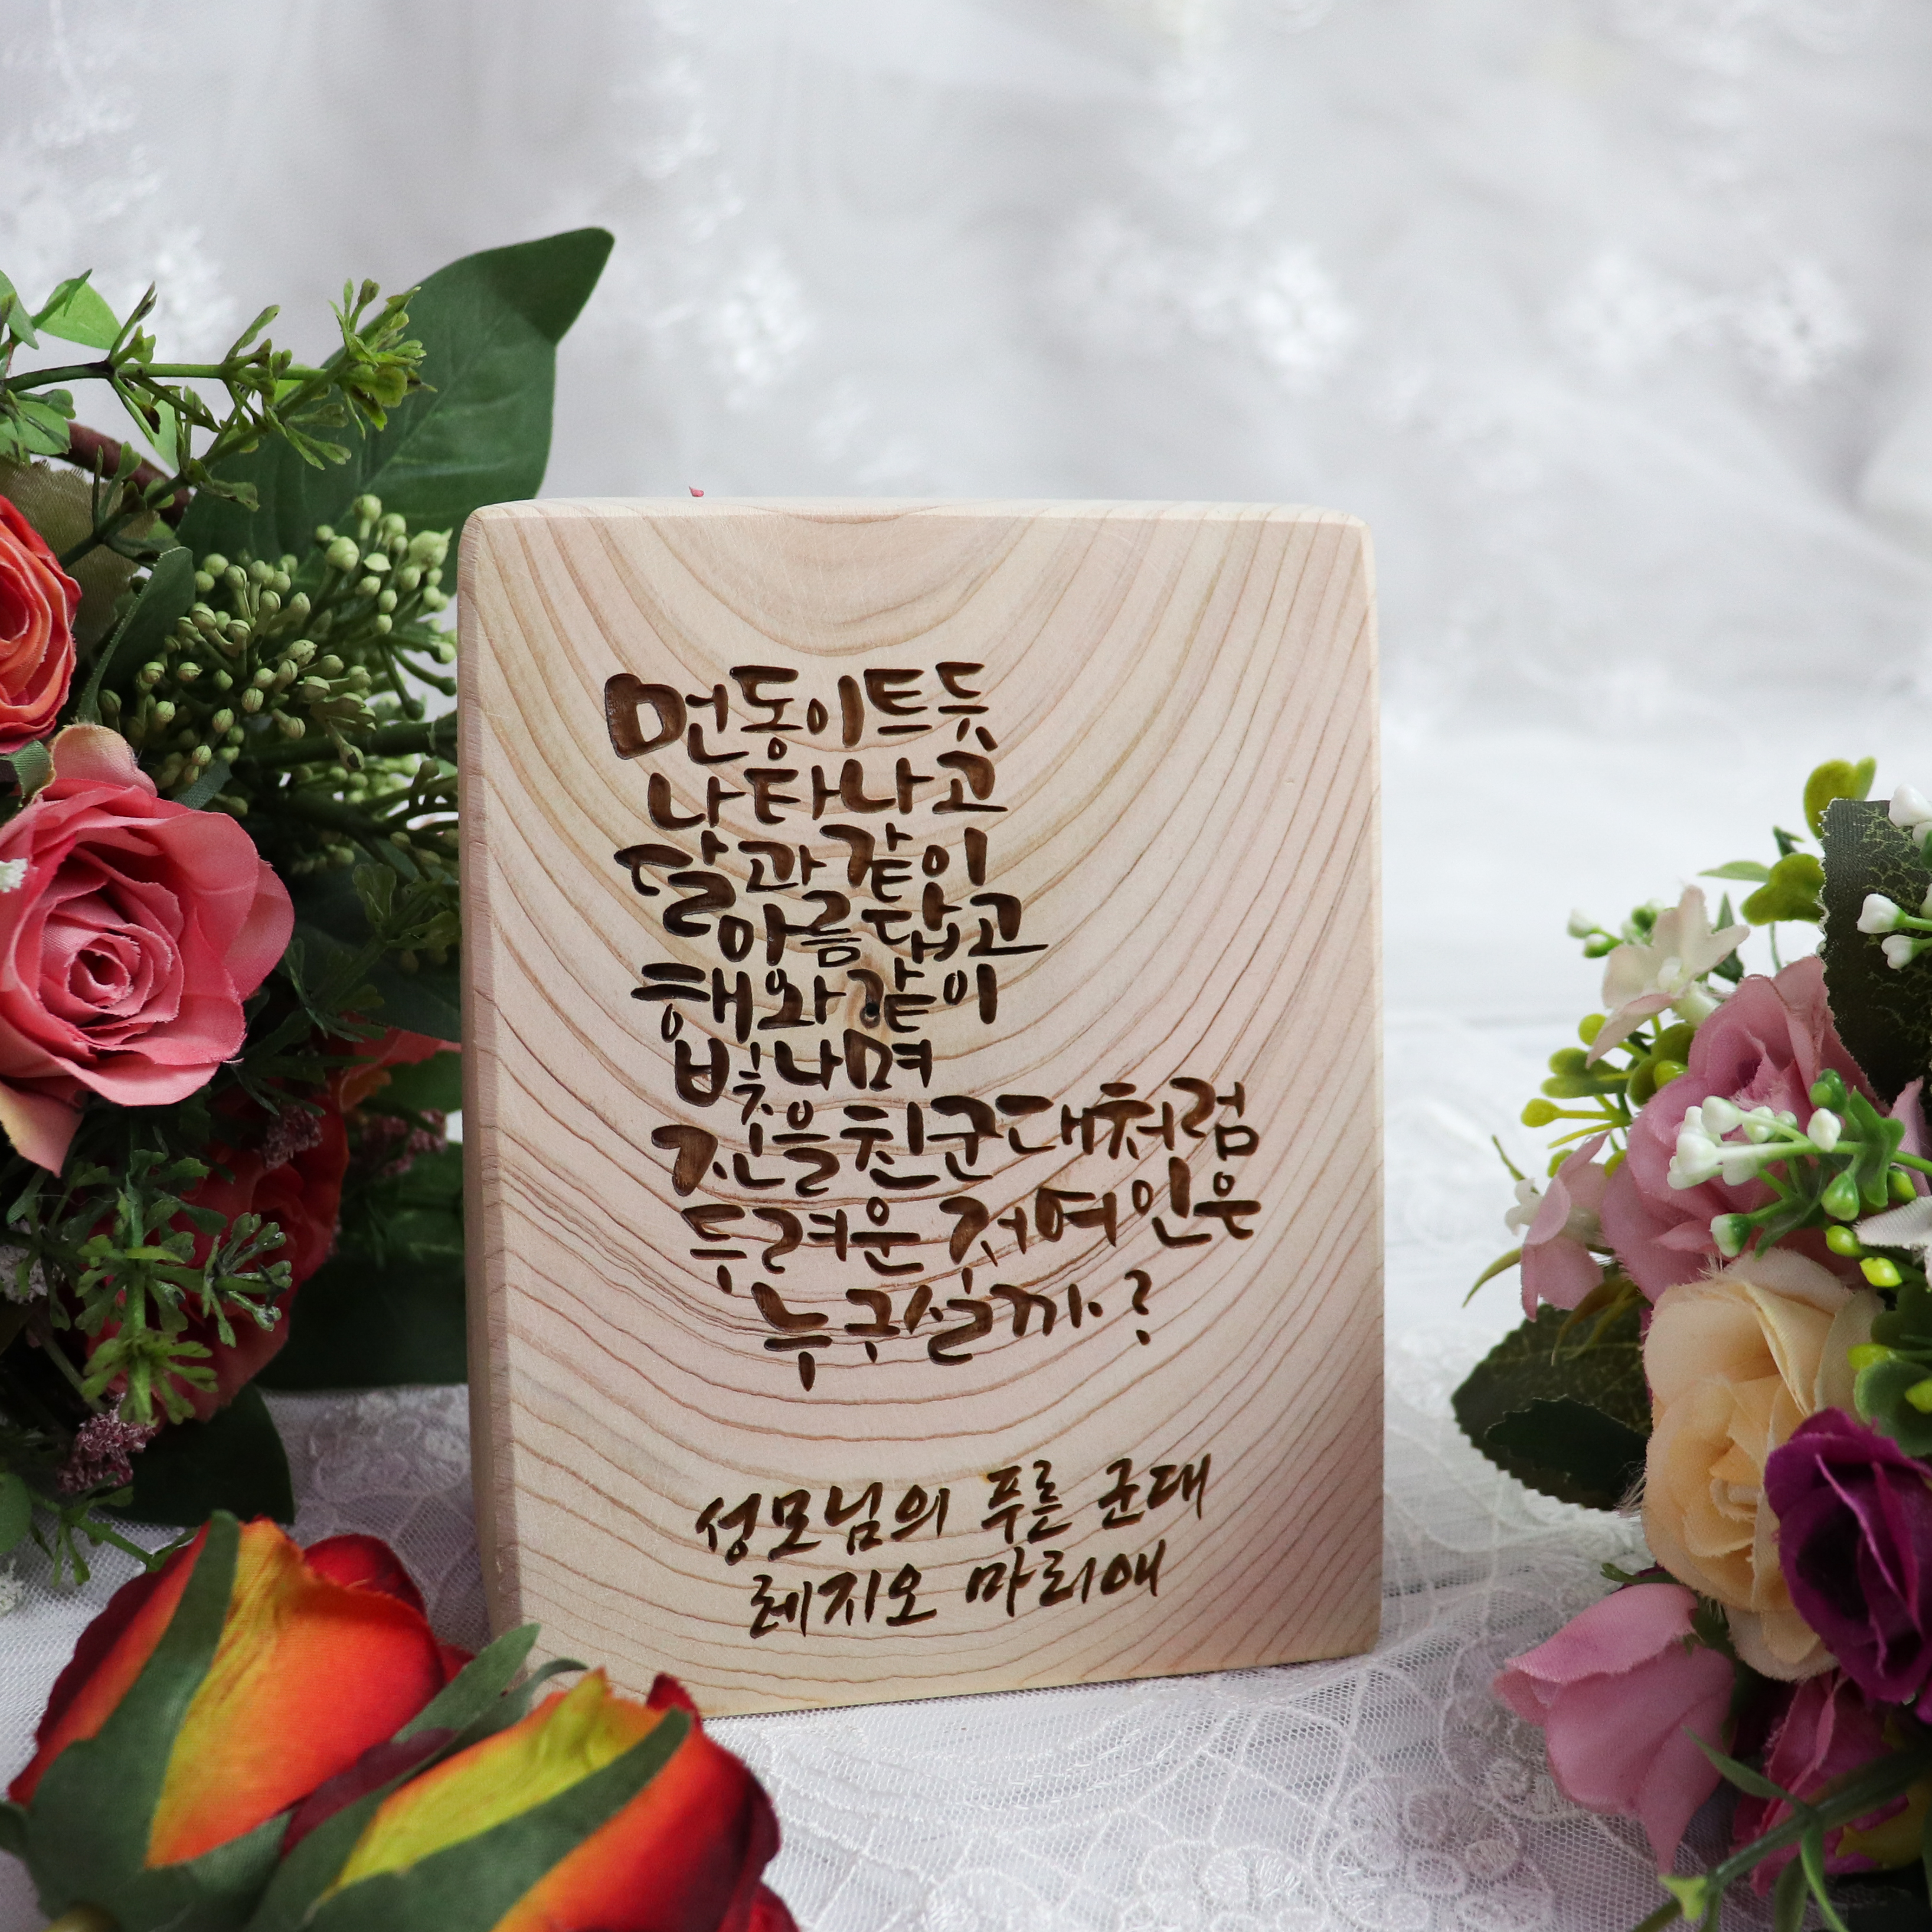 먼동이트듯
나타나고
달과같이
아름답고
해와같이
빛나며
진을친군대처럼
두려운저여인은
누구실까?
성모님의 푸른 군대
레지오 마리애